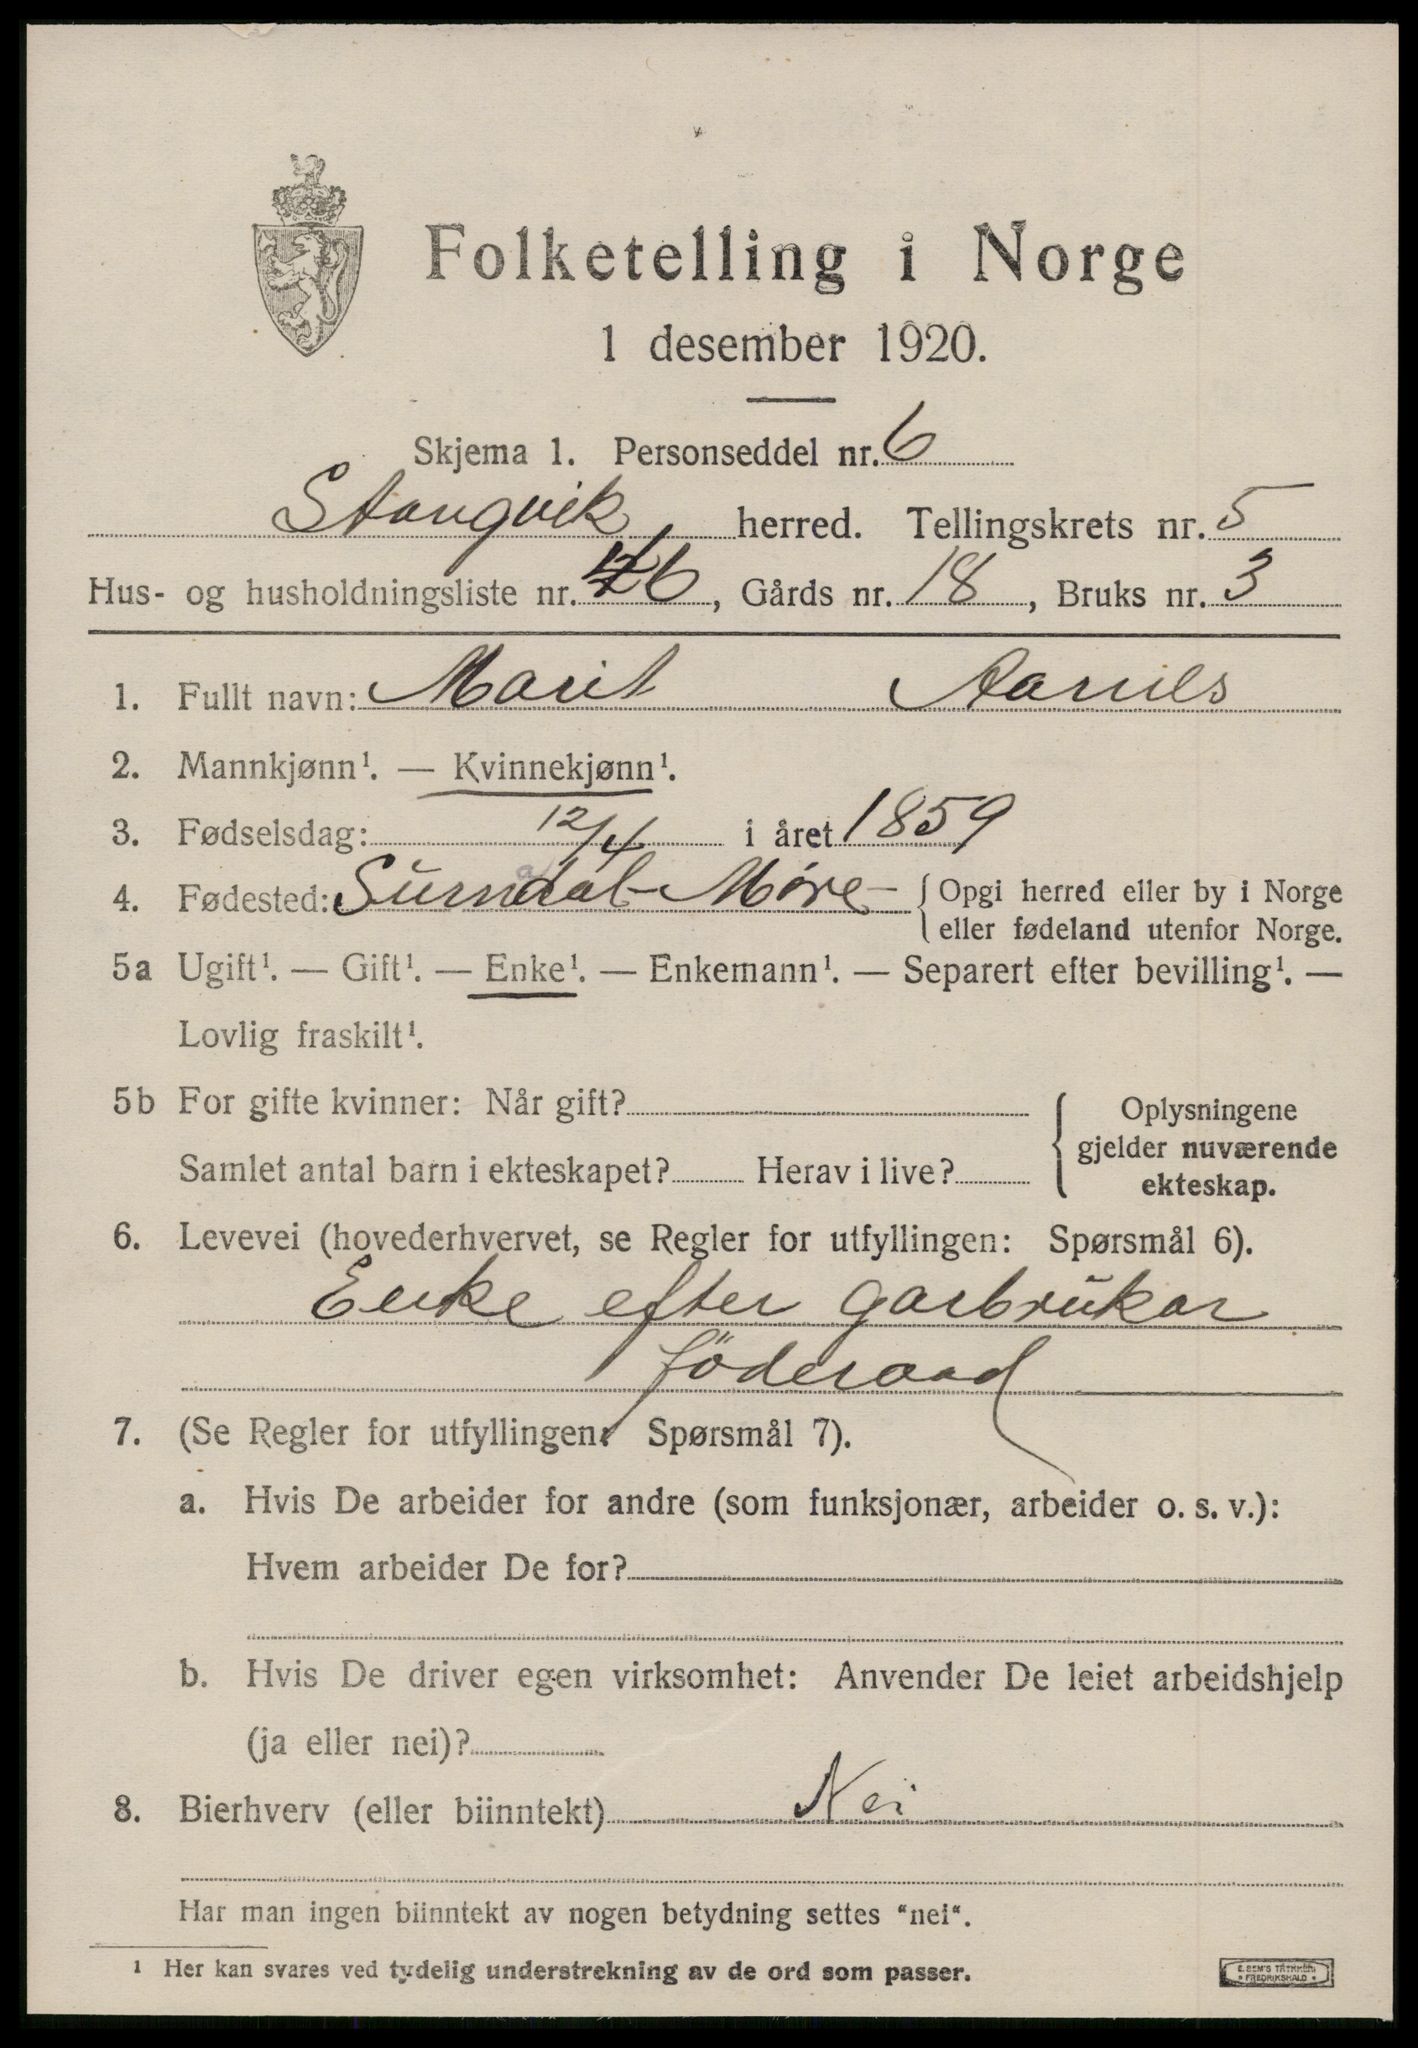 Folketelling i Norge
1 desember 1920.
Skjema 1. Personseddel nr. 6
Stangvik herred. Tellingskrets nr. 5
Hus- og husholdningsliste nr. 6, Gårds nr. 18, Bruks nr. 3
1. Fullt navn: Marit Aarnes
2. Mannkjønn¹. — Kvinnekjønn¹.
3. Fødselsdag: 12/4 i året 1859
4. Fødested: Surnadal - Møre - { Opgi herred eller by i Norge
eller fødeland utenfor Norge.
5a Ugift¹. — Gift¹. — Enke¹. — Enkemann¹. — Separert efter bevilling¹. —
Lovlig fraskilt¹.
5b For gifte kvinner: Når gift?
Samlet antal barn i ekteskapet? Herav i live?
Oplysningene
gjelder nuværende
ekteskap.
6. Levevei (hovederhvervet, se Regler for utfyllingen: Spørsmål 6).
Enke efter garbrukar
föderaad
7. (Se Regler for utfyllingen: Spørsmål 7).
a. Hvis De arbeider for andre (som funksjonær, arbeider o. s. v.):
Hvem arbeider De for?
b. Hvis De driver egen virksomhet: Anvender De leiet arbeidshjelp
(ja eller nei)?
8. Bierhverv (eller biinntekt) Nei
Har man ingen biinntekt av nogen betydning settes “nei“.
¹ Her kan svares ved tydelig understrekning av de ord som passer.
E. SEM'S TRYKKERI
FREDRIKSHALD